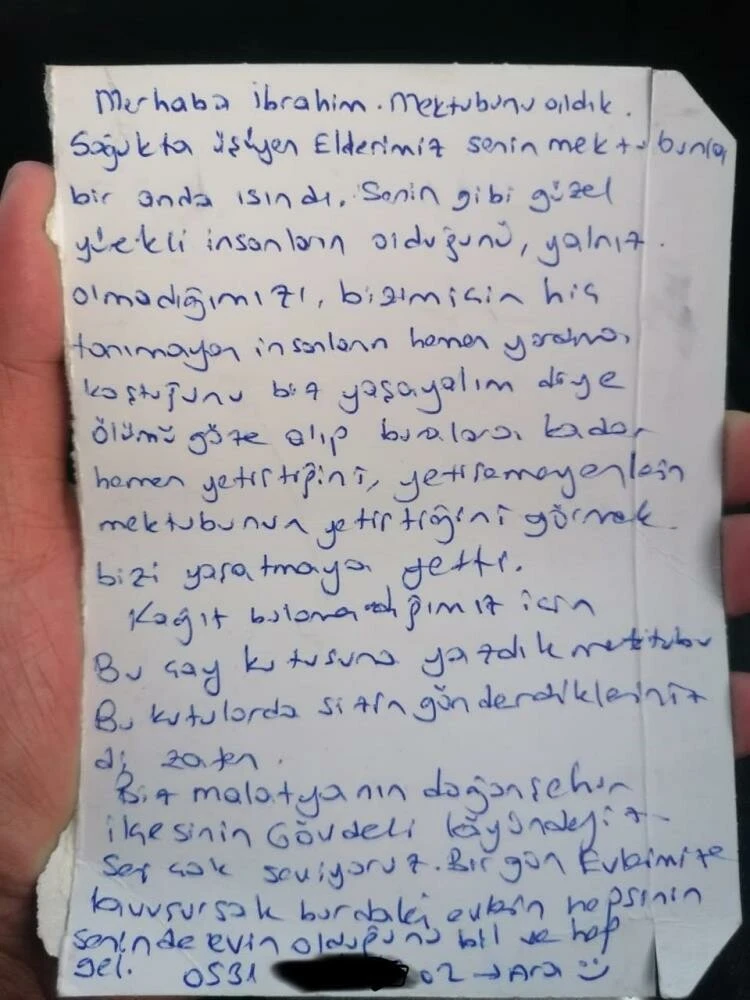 Merhaba İbrahim. Mektubunu aldık.
Soğukta üşüyen Ellerimiz senin mektubunla
bir anda ısındı. Senin gibi güzel
yürekli insanların olduğunu, yalnız
olmadığımızı, bizim için hiç
tanımayan insanların hemen yardıma
koştuğunu biz yaşayalım diye
ölümü göze alıp buralara kadar
hemen yetiştiğini, yetişemeyenlerin
mektubunun yetiştiğini görmek
bizi yaşatmaya yetti.
Kağıt bulamadığımız için
Bu çay kutusuna yazdık mektubu
Bu kutularda sizin gönderdikleriniz
di zaten.
Biz malatyanın doğanşehir
ilçesinin Gövdeli köyündeyiz
Seni çok seviyoruz. Bir gün Evlerimize
kavuşursak burdaki evlerin hepsinin
seninde evin olduğunu bil ve hep
gel. 0531 02 → Ara